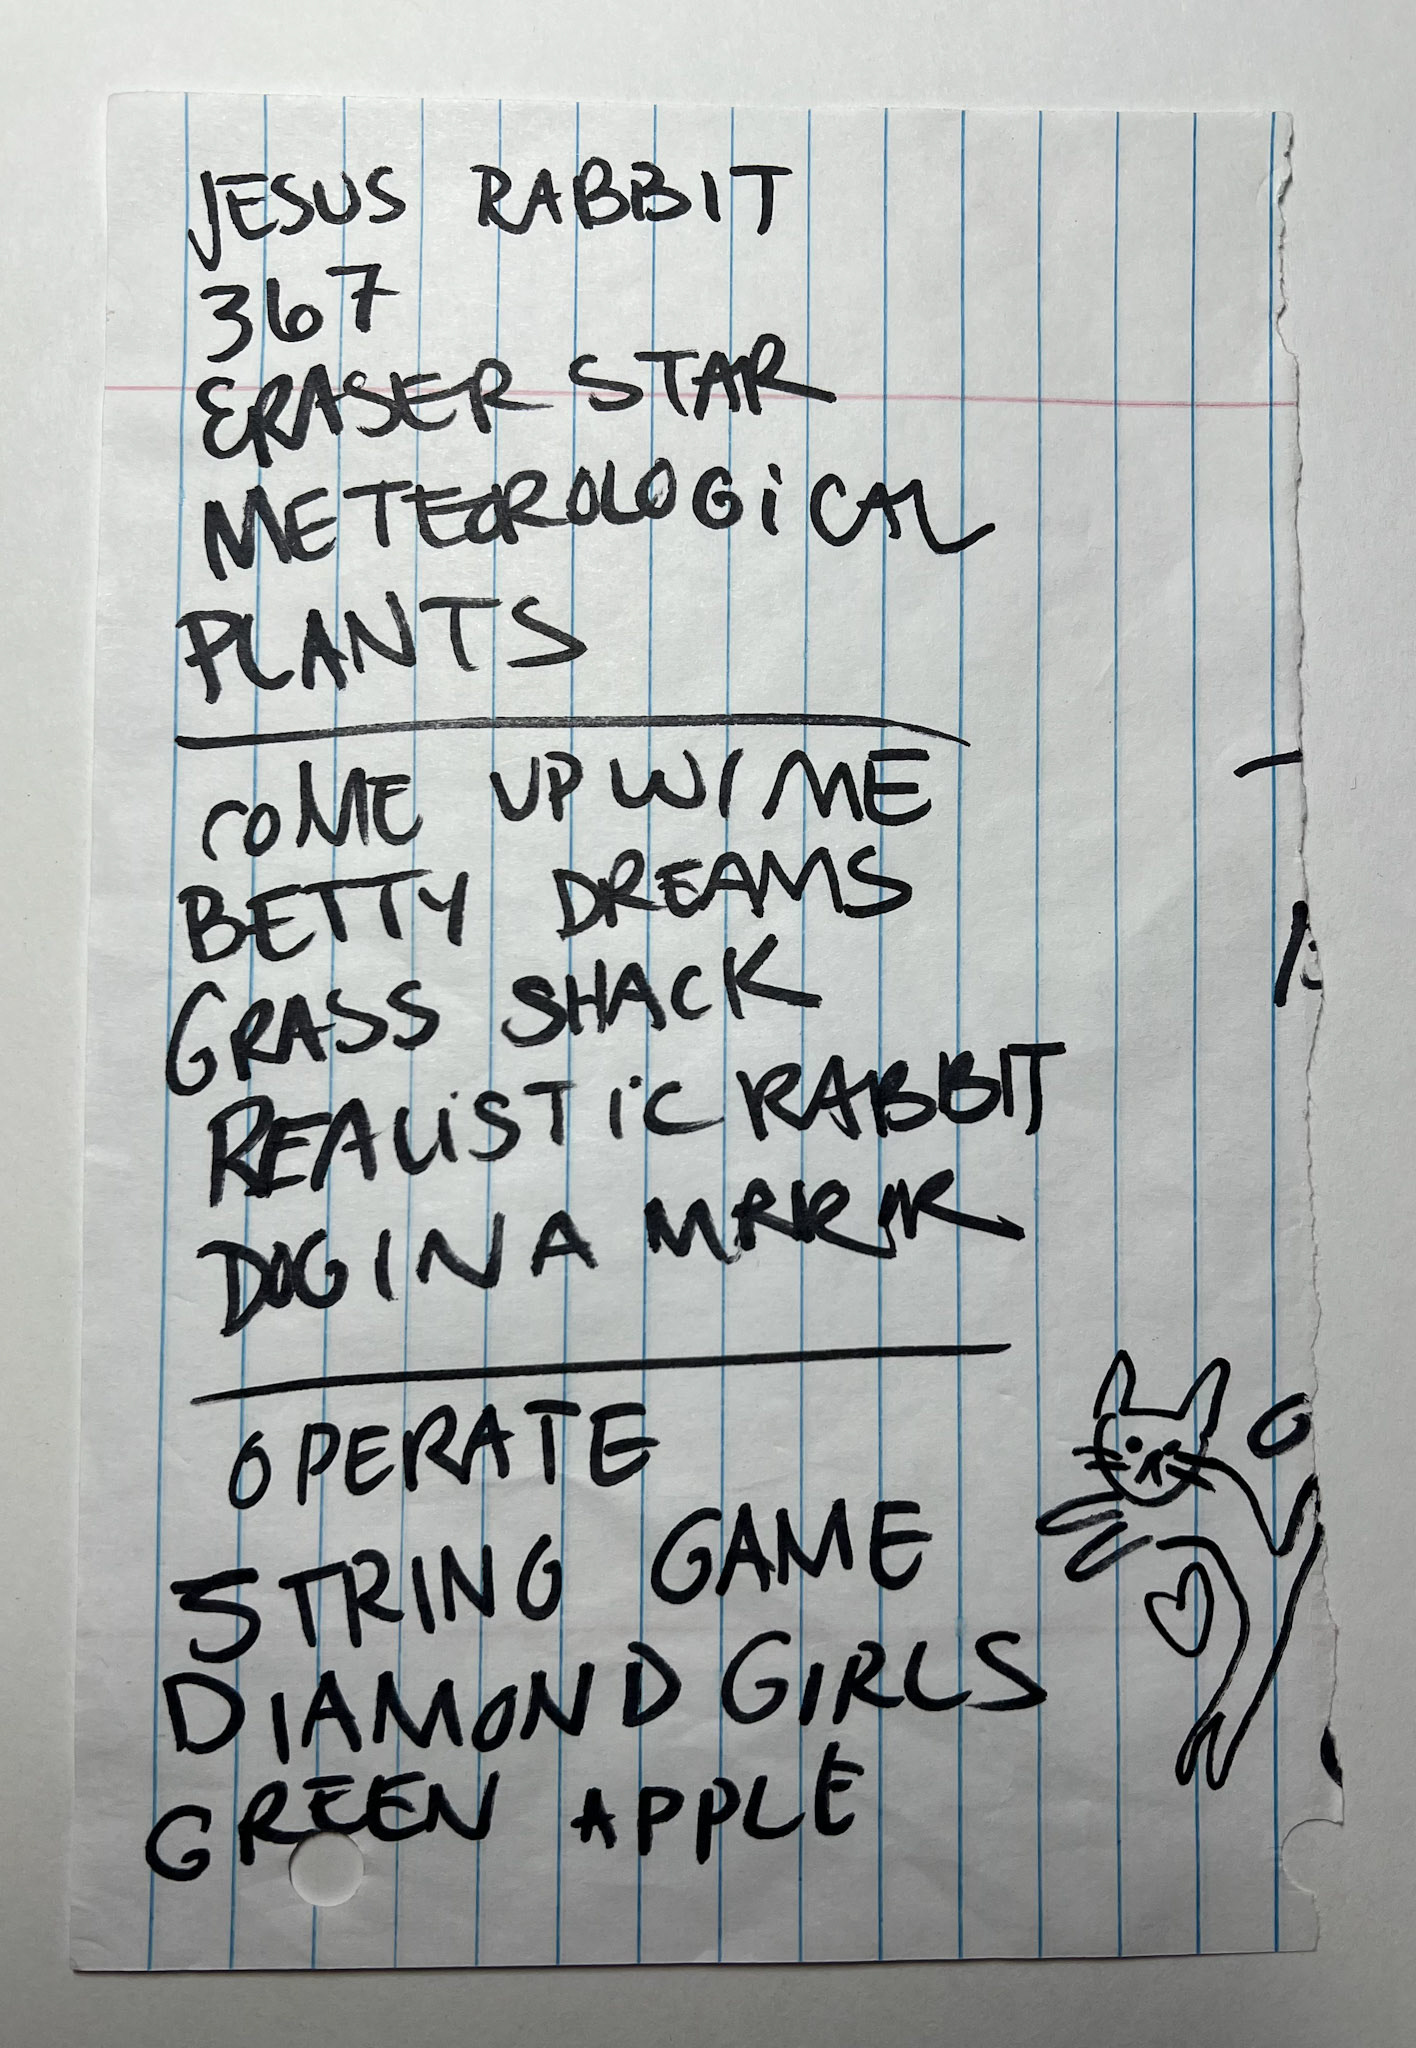 JESUS RABBIT
367
ERASER STAR
METEOROLOGiCAL
PLANTS
COME UP W/ ME
BETTY DREAMS
GRASS SHACK
REALiSTiC RABBIT
DOG IN A MRRR
OPERATE
STRING GAME
DIAMOND GIRLS
GREEN APPLE